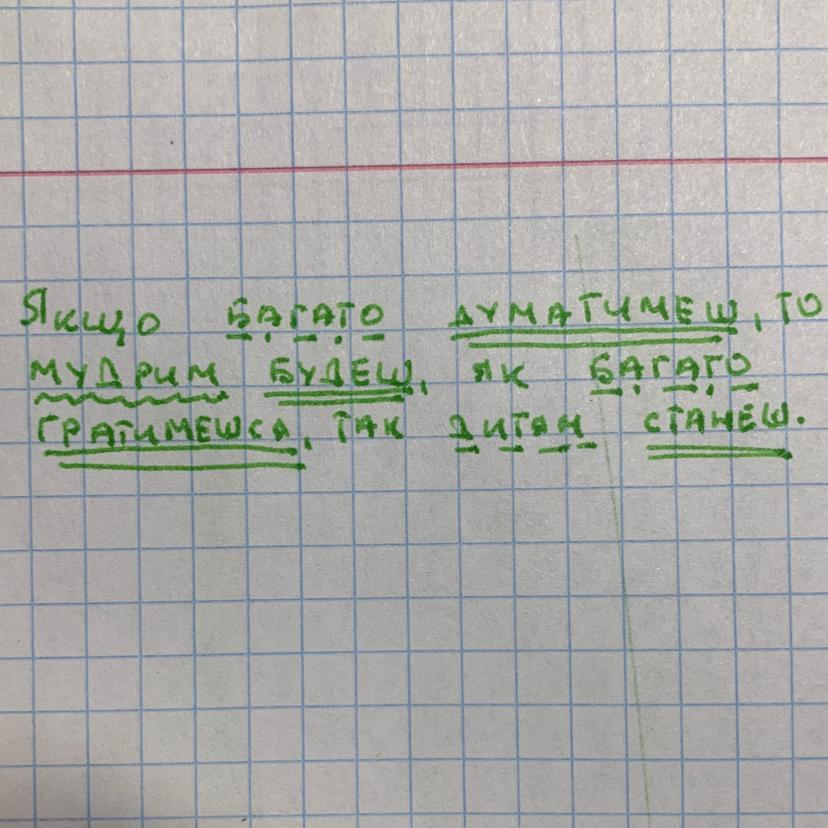 Якщо БАГАТО ДУМАТИМЕШ, ТО
МУДРИМ БУДЕШ, ЯК БАГАТО
ГРАТИМЕШСА, ТАК ДИТЯМ СТАНЕШ.